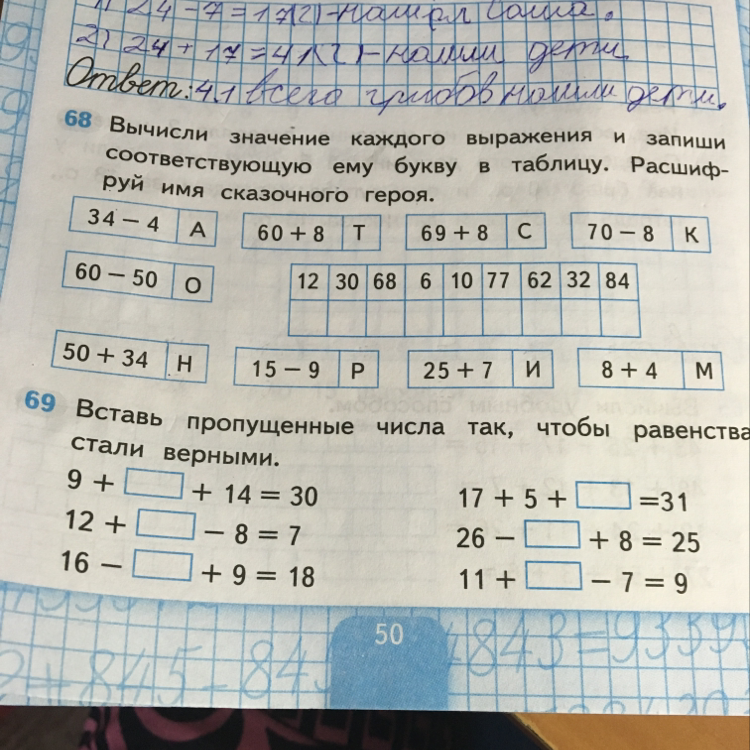 1) 24 - 7 = 17(г) - нашёл Саша.
2) 24 + 17 = 41(г) - нашли дети.
Ответ: 41 всего грибов нашли дети.
68 Вычисли значение каждого выражения и запиши
соответствующую ему букву в таблицу. Расшиф-
руй имя сказочного героя.
34 − 4 А 60 + 8 Т 69 + 8 С 70 − 8 К
60 − 50 О 12 30 68 6 10 77 62 32 84
50 + 34 Н 15 − 9 Р 25 + 7 И 8 + 4 М
69 Вставь пропущенные числа так, чтобы равенства
стали верными.
9 + + 14 = 30 17 + 5 + =31
12 + − 8 = 7 26 − + 8 = 25
16 − + 9 = 18 11 + − 7 = 9
50
+845-84 +843=9339